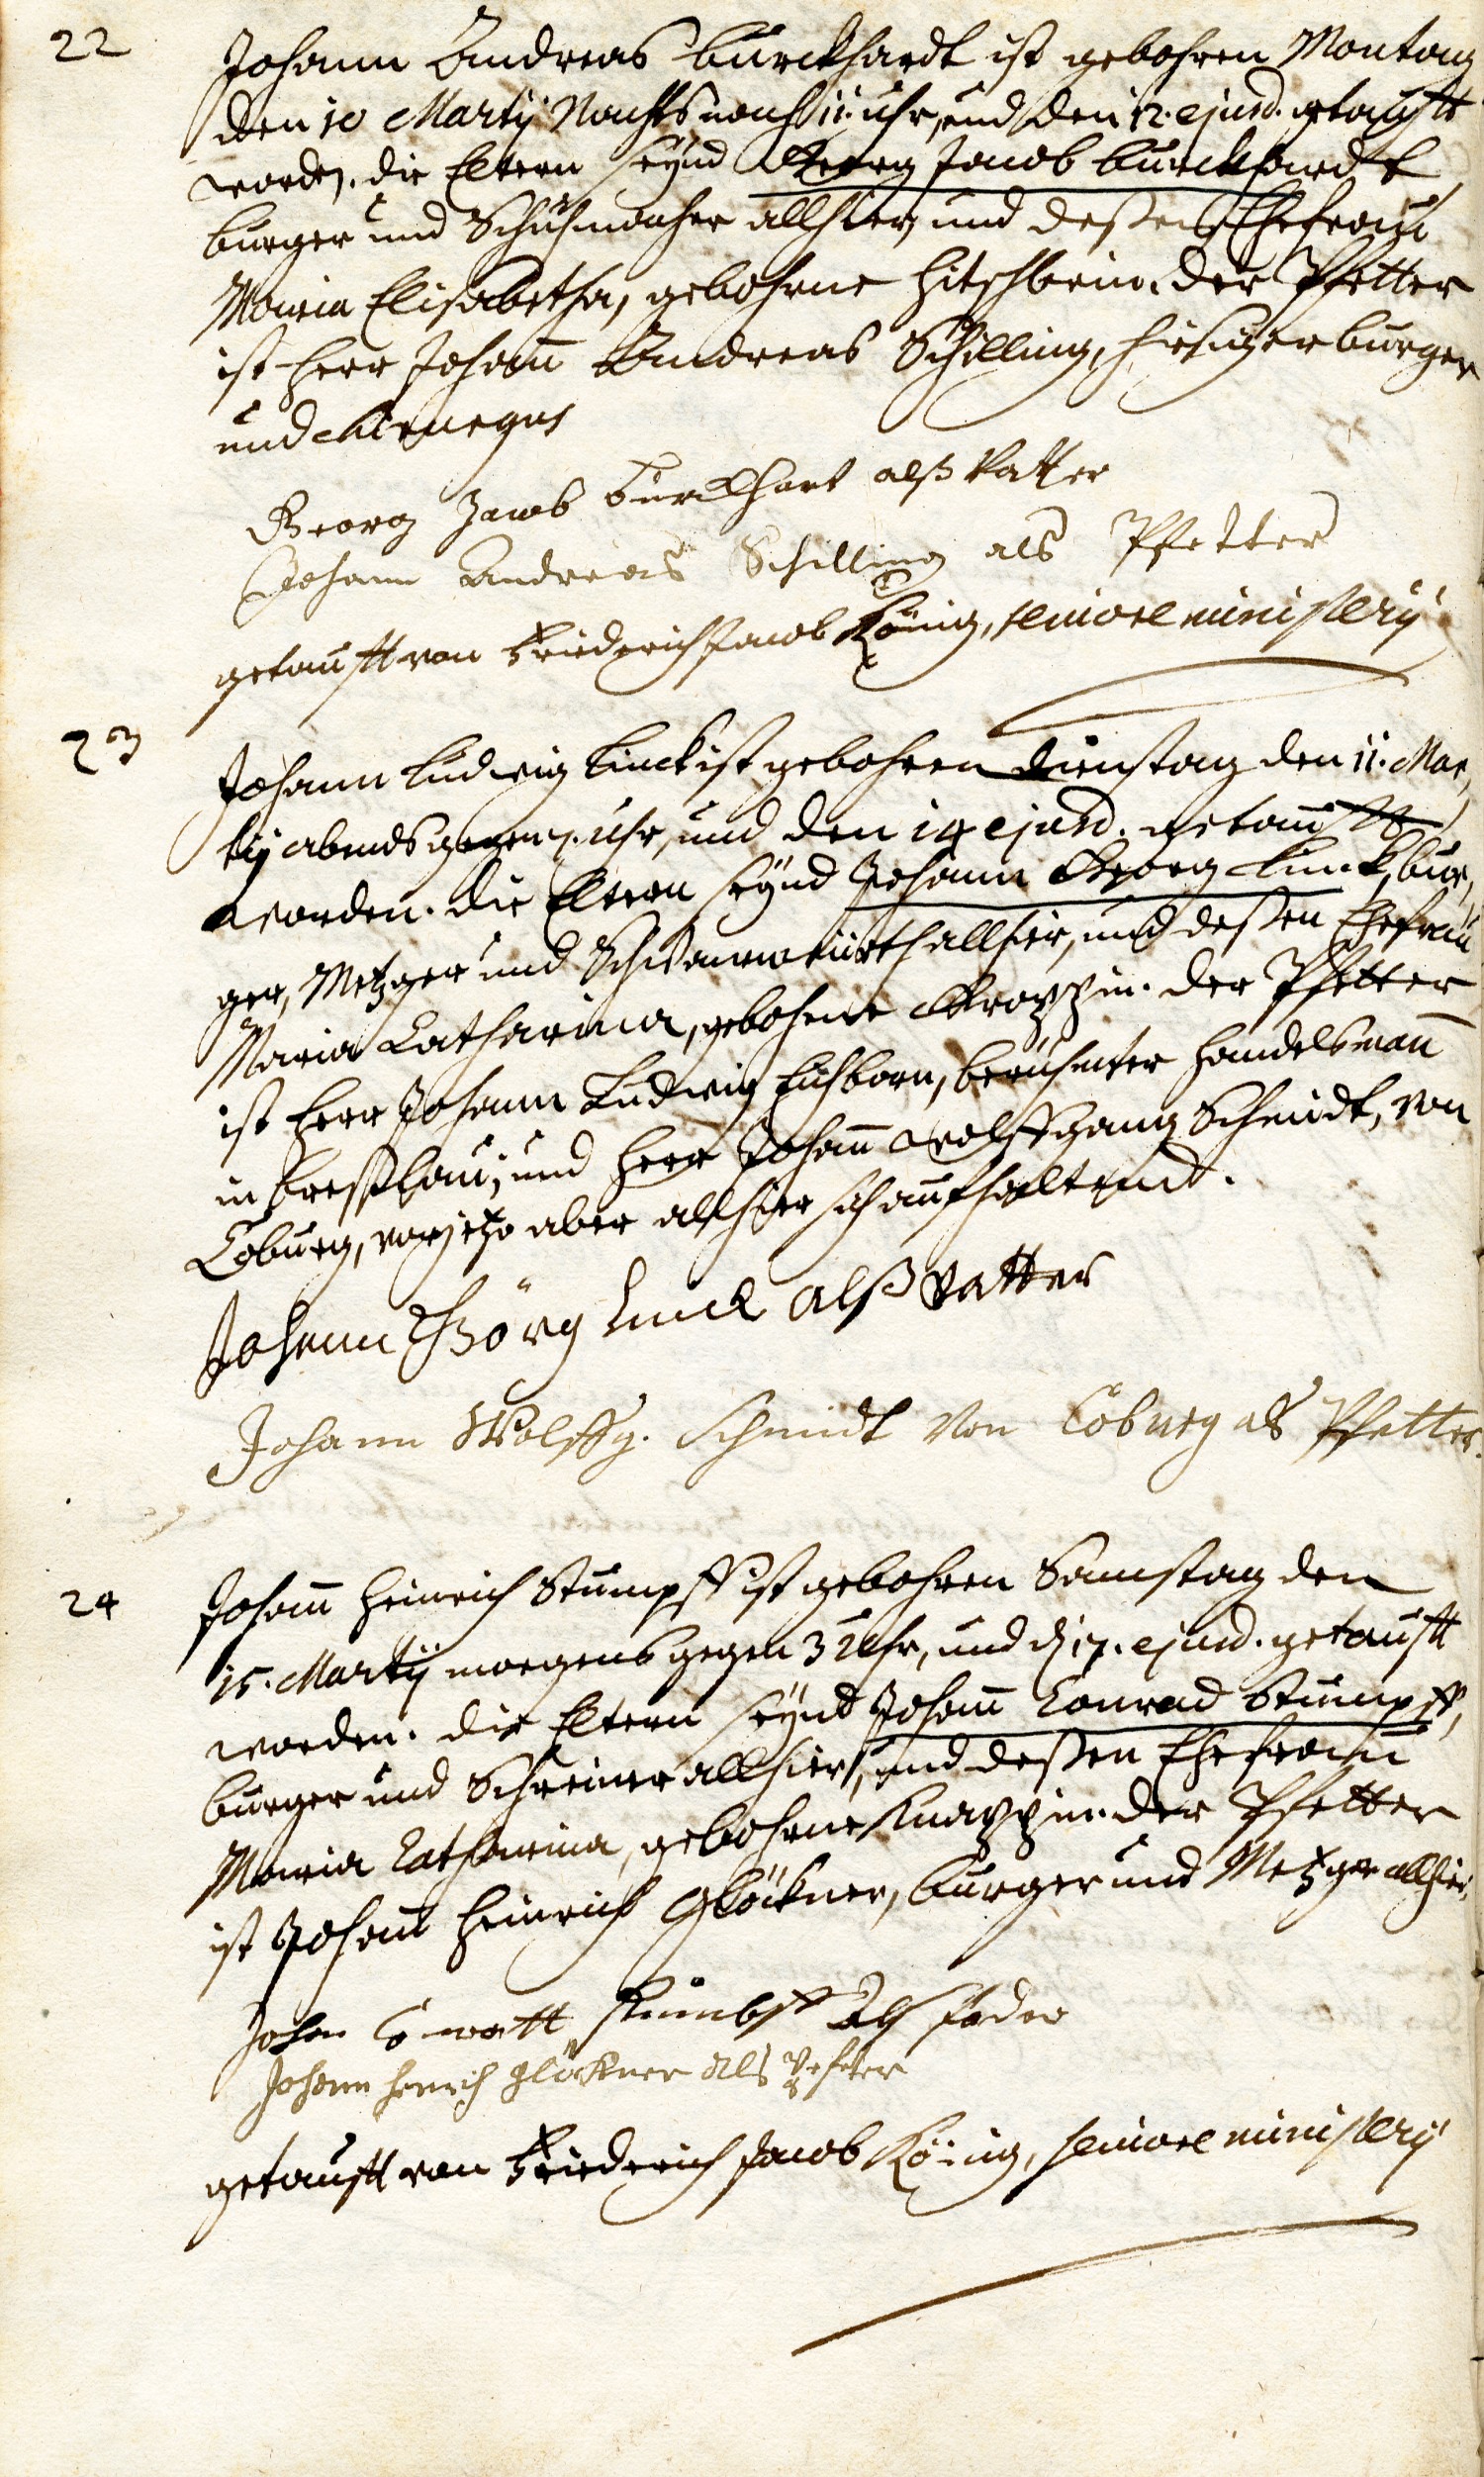 22
Johann Andreas Burckhardt ist gebohren Montag
den 10 Martij Nachts nach 11. uhr, und den 12. ejusd. getaufft
worden. die Eltern seynd Georg Jacob Burckhardt
burger und Schuhmacher allhier, und deßen Ehefrau
Maria Elisabetha, gebohrne Hitschlerin. der Pfetter
ist Herr Johann Andreas Schilling, hiesiger burger
und chirurgus
Georg Jacob Burckhart alß Vatter
Johann Andreas Schilling als Pfetter
getaufft von Friederich Jacob König, seniore ministerij
23
Johann Ludwig Linck ist gebohren Dienstag den 11. Mar,
tij abends gegen 7. uhr, und den 14 ejusd. getaufft
worden. die Eltern seynd Johann Georg Linck, bur,
ger, Metzger und Schwanenwürth allhier, und deßen Ehefrau
Maria Catharina, gebohrne Groppin. der Pfetter
ist Herr Johann Ludwig Eichborn, berühmter Handelsmann
in Breßlau, und Herr Johann Wolffgang Schmidt, von
Coburg, vorjetzo aber allhier sich aufhaltend.
Johann Görg Linck alß Vatter
Johann Wolffg. Schmidt von Coburg als Pfetter.
24
Johann Heinrich Stumpff ist gebohren Samstag den
15. Martij morgens gegen 3 Uhr, und d 17. ejusd. getaufft
worden. die Eltern seynd Johann Conrad Stumpff,
burger und Schreiner allhier, und deßen Ehefrau
Maria Catharina, gebohrne Knappin. der Pfetter
ist Johann Heinrich Glöckner, burger und Metzger allhier.
Johan Conratt Stumbff Als Fader
Johann Henrich Glöckner als Pfetter
getaufft von Friederich Jacob König, seniore ministerij